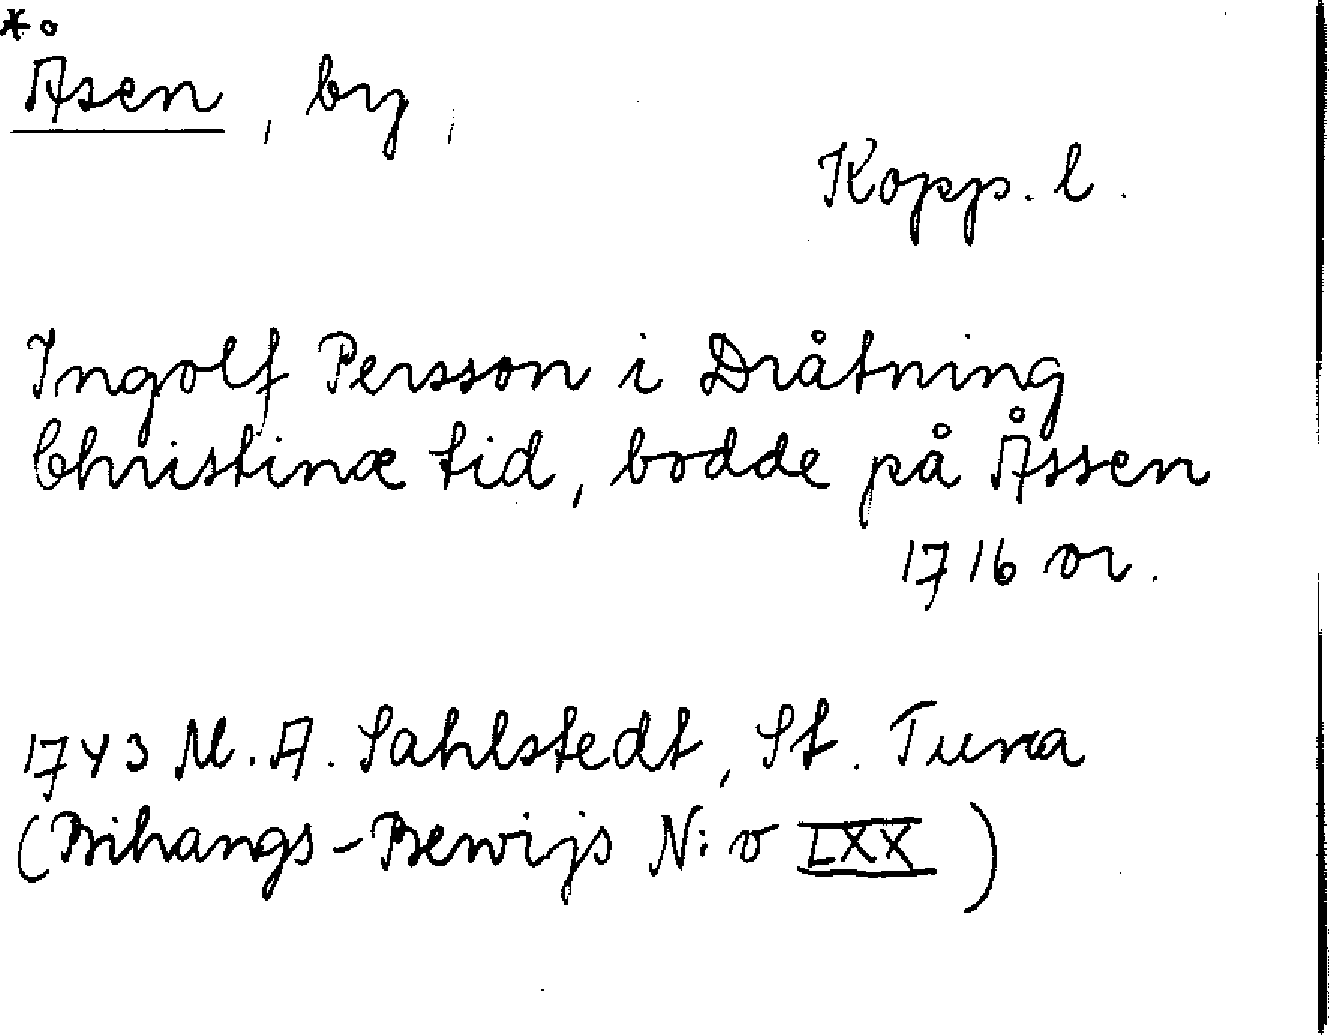 *
Åsen, by,
Kopp. l.
Ingolf Persson i Dråtning
Christinæ tid, bodde på Åssen
1716 or.
1743 M. A. Sahlstedt, St. Tuna
(Bihangs-Bewijs N:o LXX)